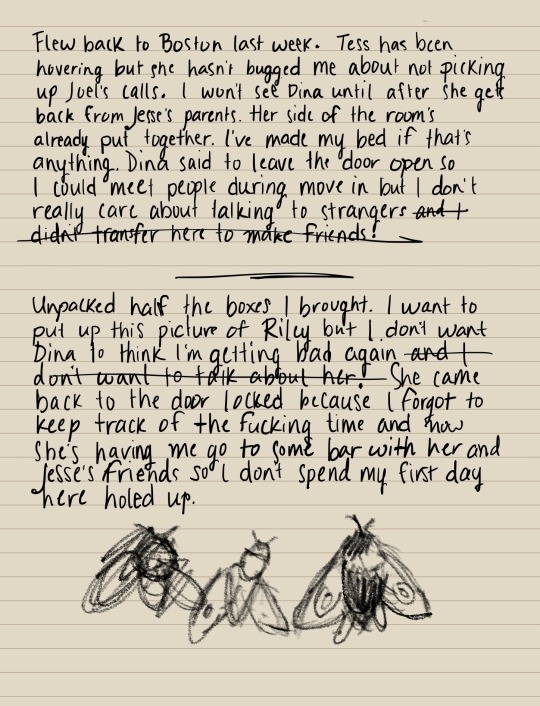 Flew back to Boston last week. Tess has been
hovering but she hasn't bugged me about not picking
up Joel's calls. I won't see Dina until after she gets
back from Jesse's parents. Her side of the room's
already put together. I've made my bed if that's
anything. Dina said to leave the door open so
I could meet people during move in but I don't
really care about talking to strangers and I
didn't transfer here to make friends!
Unpacked half the boxes I brought. I want to
put up this picture of Riley but I don't want
Dina to think I'm getting bad again and I
don't want to talk about her! She came
back to the door locked because I forgot to
keep track of the fucking time and now
she's having me go to some bar with her and
Jesse's friends so I don't spend my first day
here holed up.